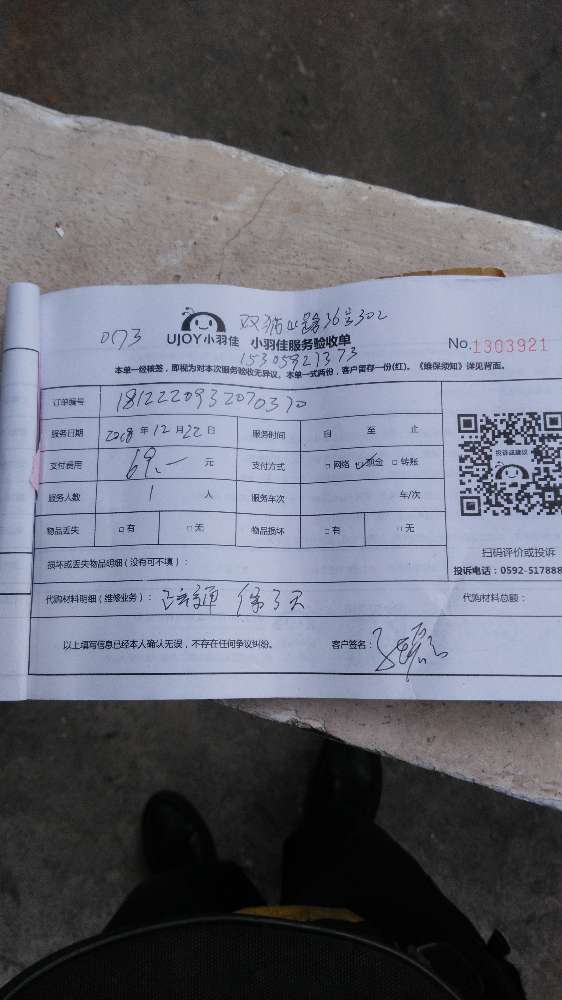 双狮山路36号302
0173 UJOY小羽佳 小羽佳服务验收单 No.1303921
15305921373
本单一经核签，即视为对本次服务验收无异议。本单一式两份，客户留存一份(红)。《维保须知》详见背面。
订单编号 1812220932070370
服务日期 2018 年 12 月 22 日 服务时间 自 至 止
支付费用 69.— 元 支付方式 □网络 ☑现金 □转账
服务人数 1 人 服务车次 车/次
物品丢失 □有 □无 物品损坏 □有 □无
投诉或建议
扫码评价或投诉
投诉电话：0592-517888
损坏或丢失物品明细（没有可不填）：
代购材料明细（维修业务）： 通 保3天 代购材料总额：
以上填写信息已经本人确认无误，不存在任何争议纠纷。 客户签名：